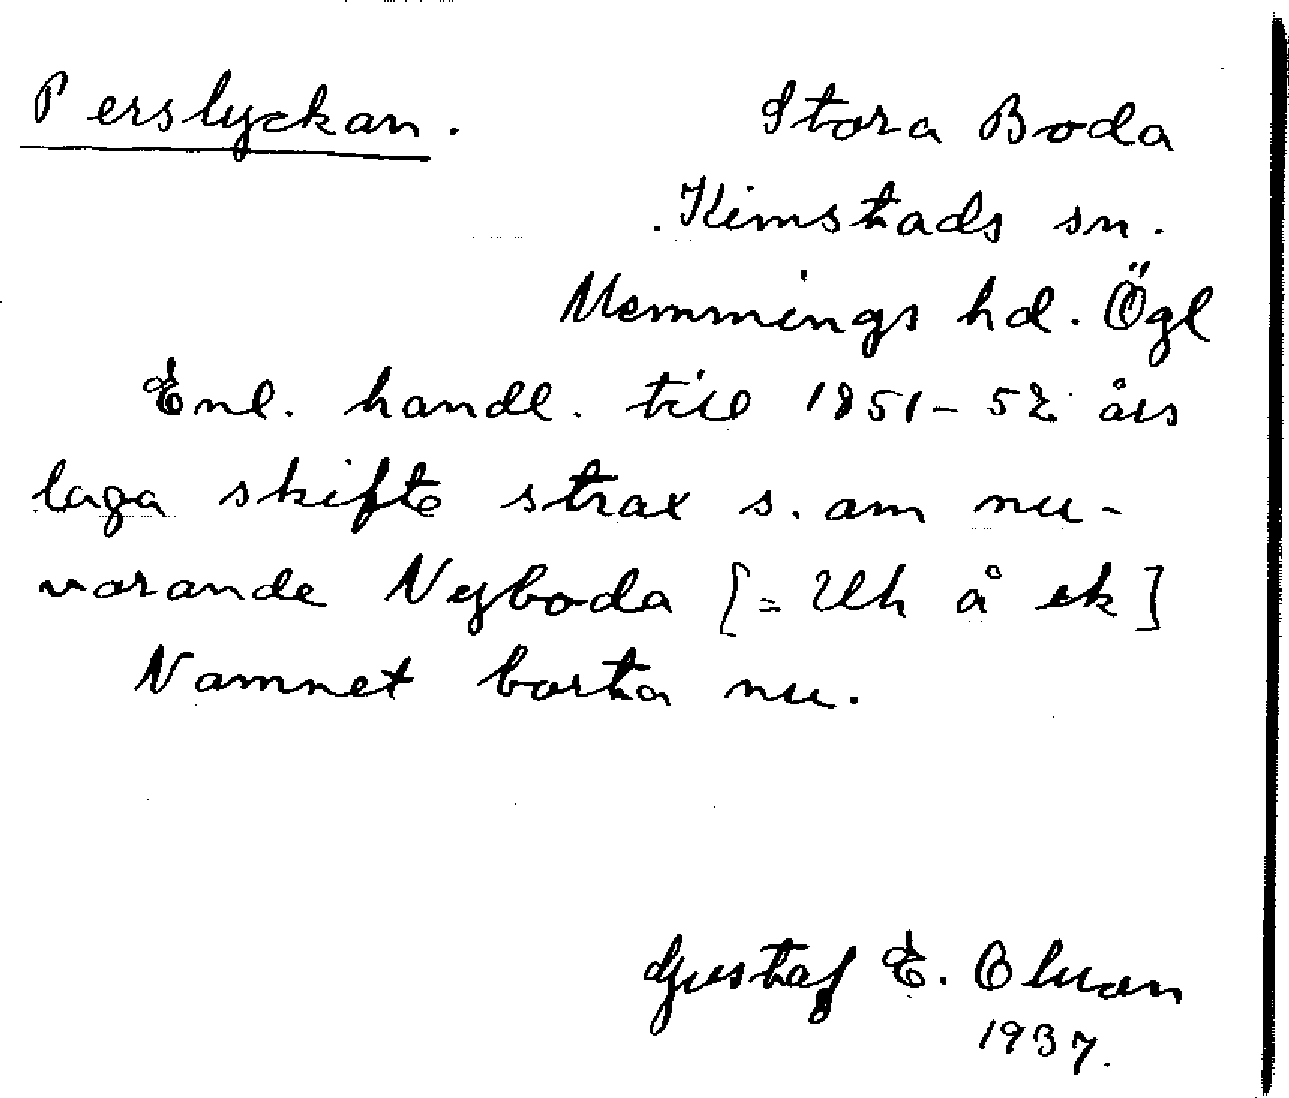 Perslyckan. Stora Boda
Kimstads sn.
Memmings hd. Ögl
Enl. handl. till 1851-52 års
laga skifte strax s. om nu-
varande Nyboda [= Uh å ek]
Namnet borta nu.
Gustaf E. Olson
1937.